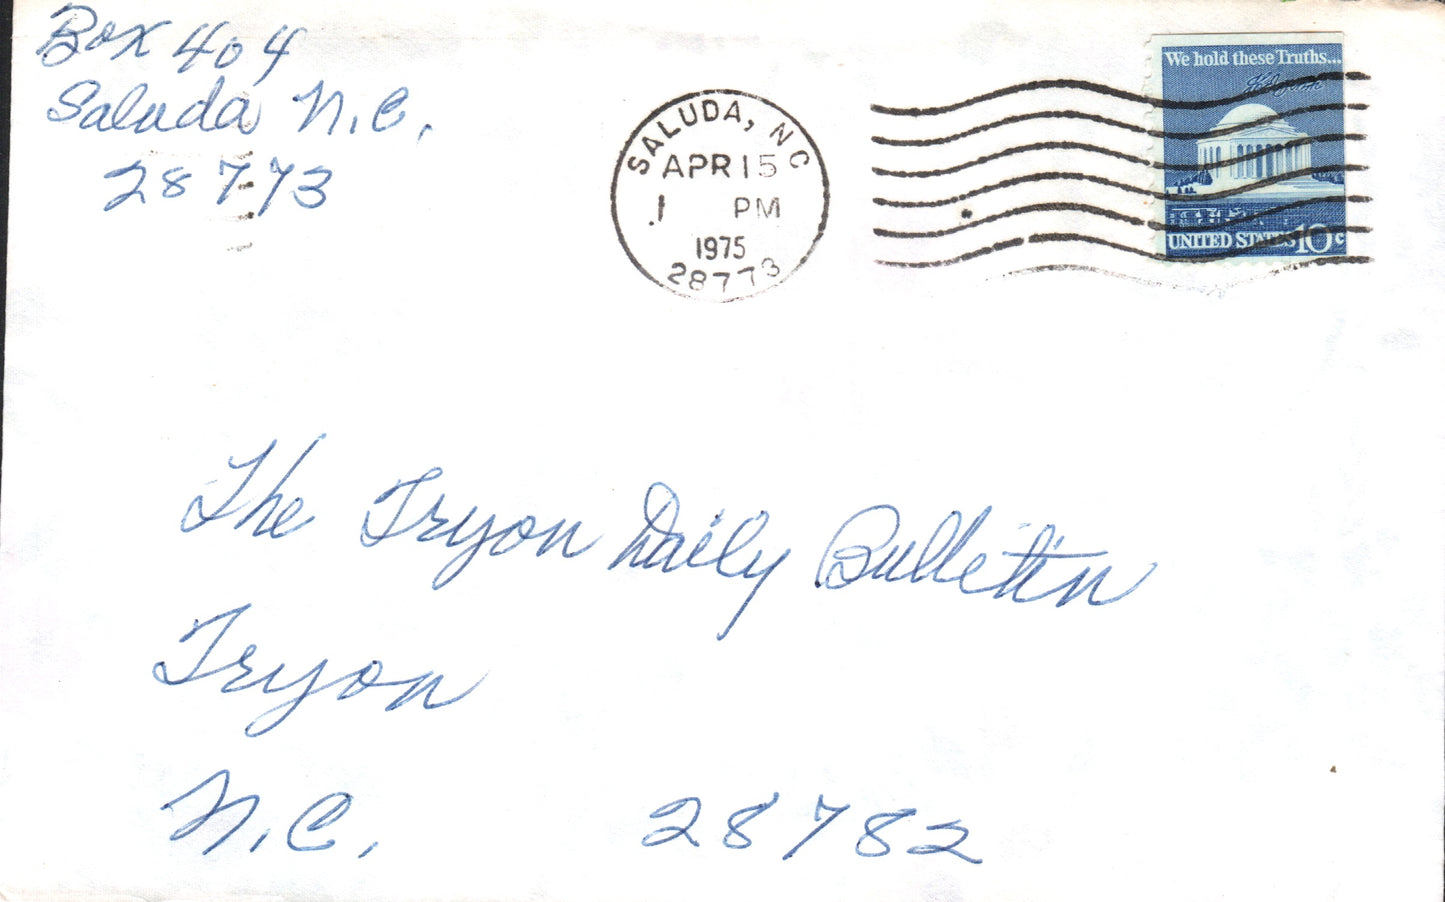 Box 404
Saluda N.C.
28773
SALUDA, NC
APR 15
1 PM
1975
28773
We hold these Truths...
UNITED STATES 10c
The Tryon Daily Bulletin
Tryon
N.C. 28782